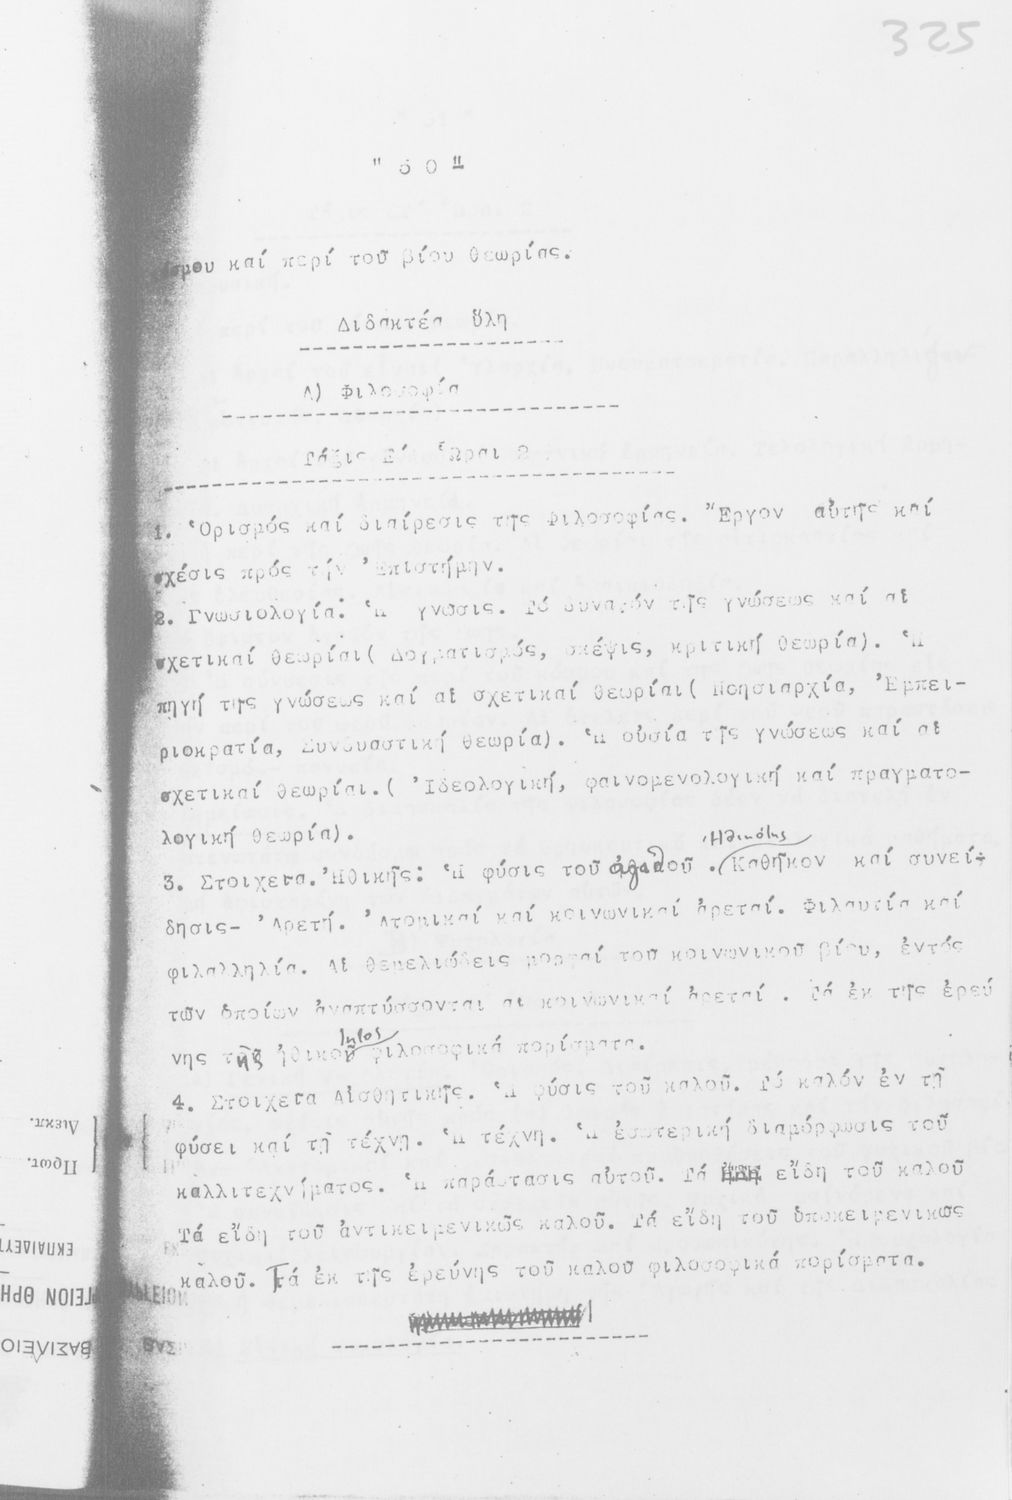 325
" 60 "
καί περί τοῦ βίου θεωρίας.
Διδακτέα ὕλη
Α) Φιλοσοφία
Τάξις Ὧραι 2
1. Ὁρισμός καί διαίρεσις τῆς Φιλοσοφίας. Ἔργον αὐτῆς καί
σχέσις πρός τήν Ἐπιστήμην.
2. Γνωσιολογία: Ἡ γνῶσις. Τό δυνατόν τῆς γνώσεως καί αἱ
σχετικαί θεωρίαι( Δογματισμός, σκέψις, κριτική θεωρία). Ἡ
πηγή τῆς γνώσεως καί αἱ σχετικαί θεωρίαι( Νοησιαρχία, Ἐμπει-
ριοκρατία, Συνδυαστική θεωρία). Ἡ οὐσία τῆς γνώσεως καί αἱ
σχετικαί θεωρίαι.( Ἰδεολογική, φαινομενολογική καί πραγματο-
λογική θεωρία).
Ἠθικότης
3. Στοιχεῖα Ἠθικῆς: Ἡ φύσις τοῦ ἀγαθοῦ . Καθῆκον καί συνεί-
δησις- Ἀρετή. Ἀτομικαί καί κοινωνικαί ἀρεταί. Φιλαυτία καί
φιλαλληλία. Αἱ θεμελιώδεις μορφαί τοῦ κοινωνικοῦ βίου, ἐντός
τῶν ὁποίων ἀναπτύσσονται αἱ κοινωνικαί ἀρεταί . Τά ἐκ τῆς ἐρεύ
νης τῆς ἠθικότητος φιλοσοφικά πορίσματα.
4. Στοιχεῖα Αἰσθητικῆς. Ἡ φύσις τοῦ καλοῦ. Τό καλόν ἐν τῇ
φύσει καί τῇ τέχνῃ. Ἡ τέχνη. Ἡ ἐσωτερική διαμόρφωσις τοῦ
καλλιτεχνήματος. Ἡ παράστασις αὐτοῦ. Τά εἴδη τοῦ καλοῦ
Τά εἴδη τοῦ ἀντικειμενικῶς καλοῦ. Τά εἴδη τοῦ ὑποκειμενικῶς
καλοῦ. Τά ἐκ τῆς ἐρεύνης τοῦ καλοῦ φιλοσοφικά πορίσματα.
Διεκπ.
Πρωτ.
ΒΑΣΙΛΕΙΟ